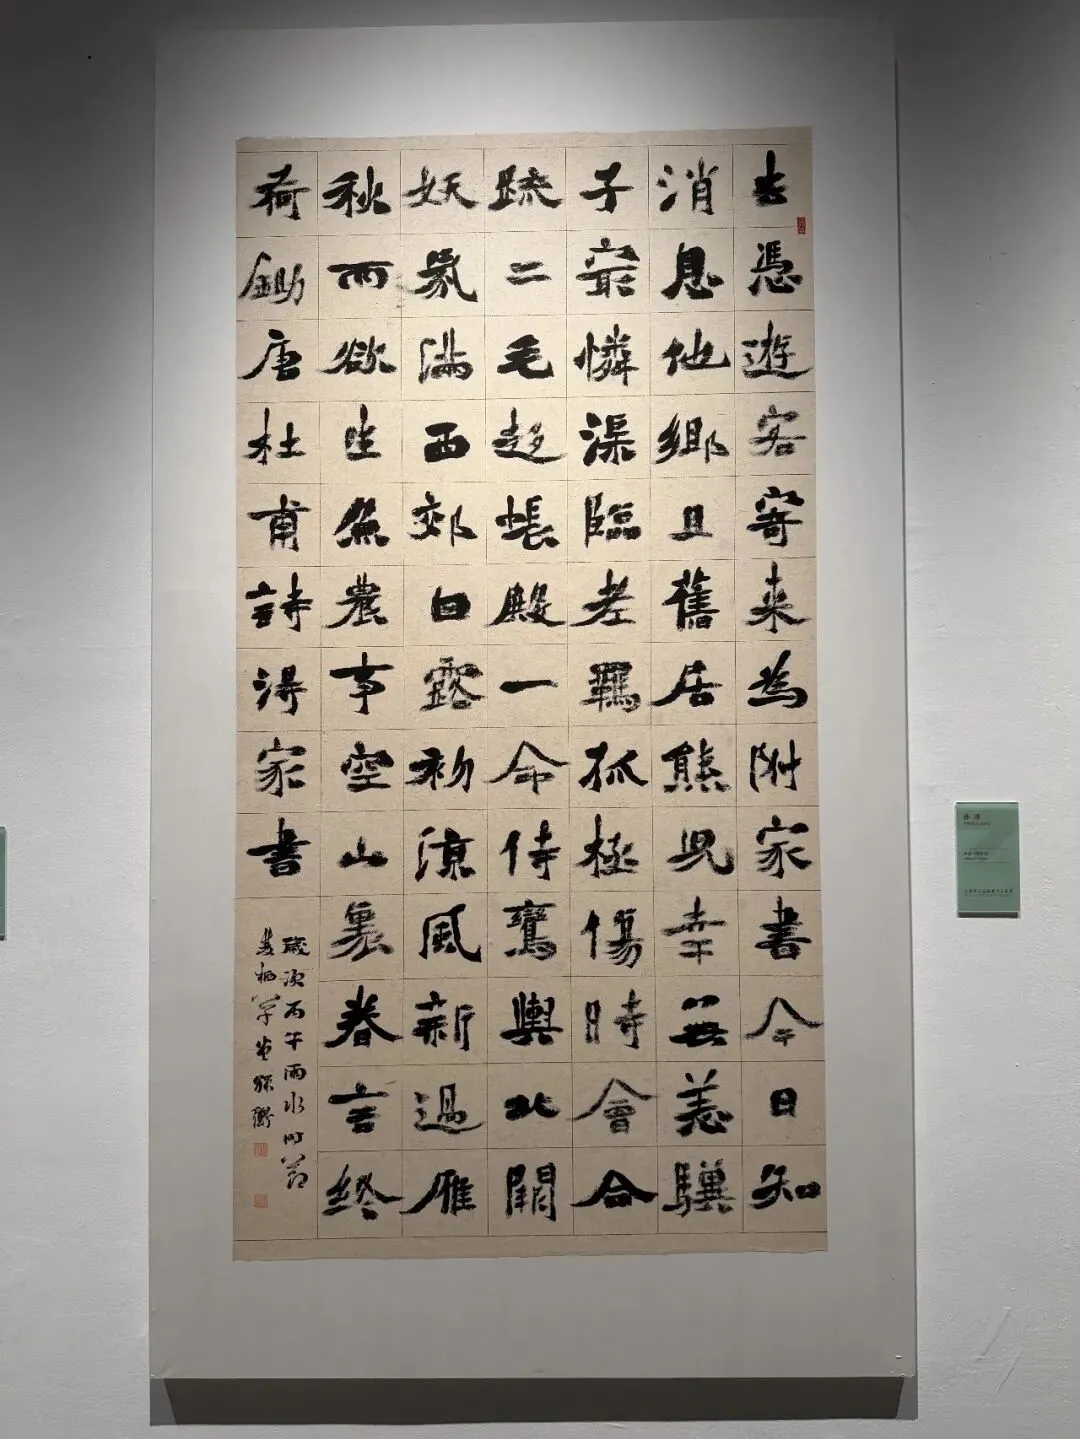 去憑遊客寄来為附家書今日知
消息他鄉且舊居熊兒幸無恙驥
子最憐渠臨老羈孤極傷時會合
踈二毛趍帳殿一命侍鸞輿北闕
妖氛滿西郊白露初涼風新過雁
秋雨欲生魚農事空山裏眷言終
荷鋤唐杜甫詩淂家書
歲次丙午雨水時節
栖草堂孫